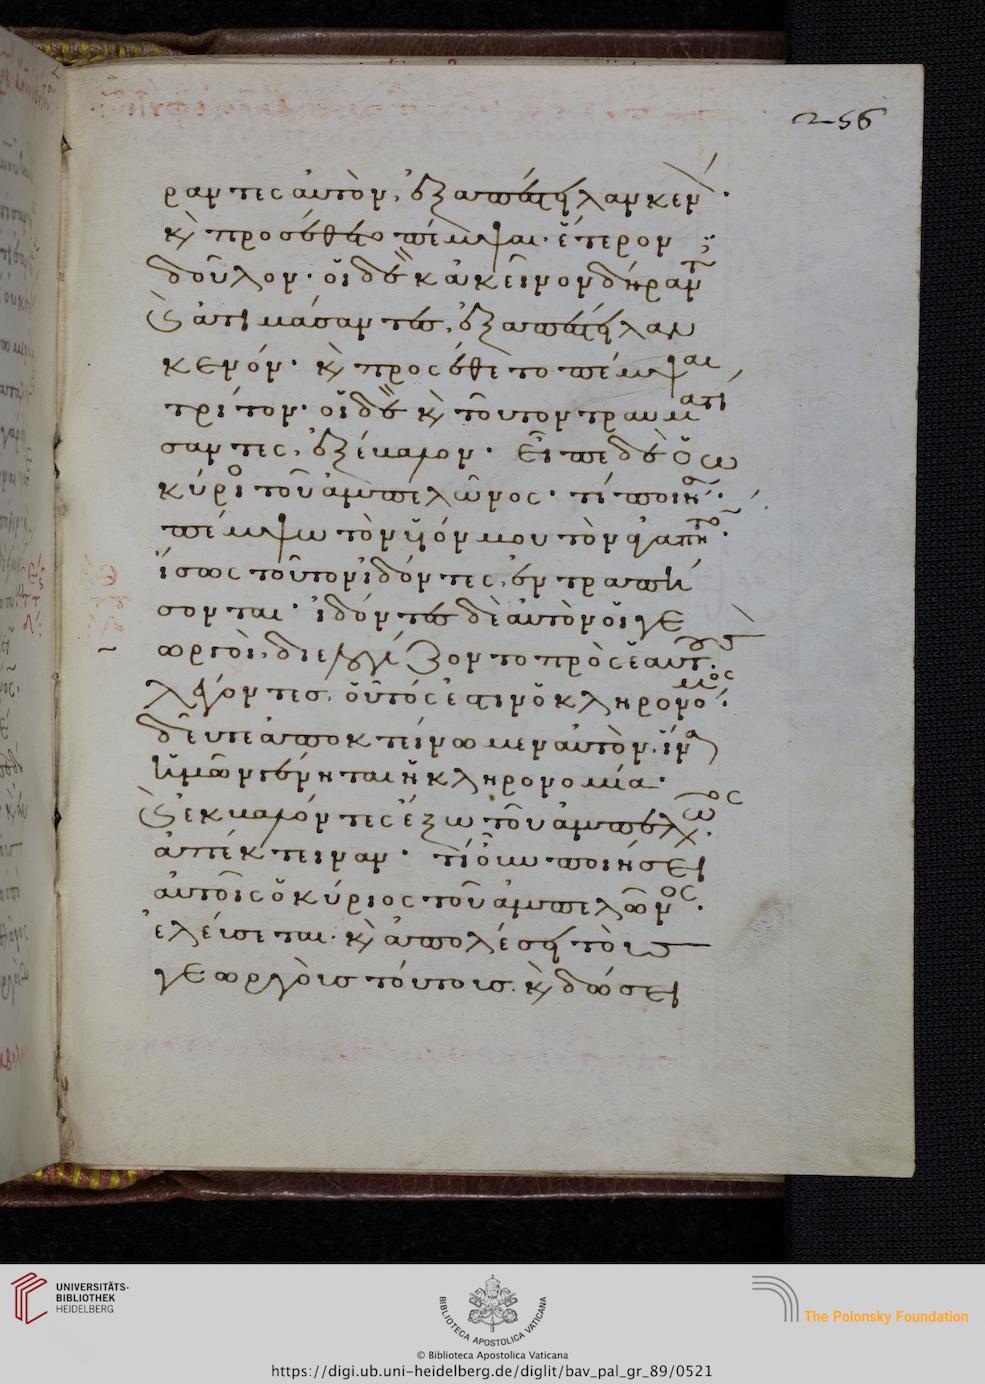 256
ραντες αὐτὸν, ἐξαπέστειλαν κενὸν·
κ(αὶ) προσέθετο πέμψαι· ἕτερον
δοῦλον· οἱ δὲ κἀκεῖνον δήραντ(ες)
κ(αὶ) ἀτιμάσαντες, ἐξαπέστειλαν
κενόν· κ(αὶ) προσέθετο πέμψαι
τρίτον· οἱ δὲ κ(αὶ) τοῦτον τραυματί
σαντες, ἐξέβαλον· εἶπε δὲ ὁ
κύριος τοῦ ἀμπελῶνος· τί ποιήσω·
πέμψω τὸν υἱόν μου τὸν ἀγαπητὸν·
ἴσως τοῦτον ἰδόντες, ἐντραπή
σονται· ἰδόντες δὲ αὐτὸν οἱ γε
ωργοὶ, διελογίζοντο πρὸς ἑαυτοὺς·
λέγοντες. οὗτός ἐστιν ὁ κληρονόμος·
δεῦτε ἀποκτείνωμεν αὐτὸν, ἵνα
ἡμῶν γένηται ἡ κληρονομία·
κ(αὶ) ἐκβαλόντες ἔξω τοῦ ἀμπελῶνος
ἀπέκτειναν· τί οὖν ποιήσει
αὐτοῖς ὁ κύριος τοῦ ἀμπελῶνος·
ἐλεύσεται· κ(αὶ) ἀπολέσει τοὺς
γεωργοὺς τούτους. κ(αὶ) δώσει
UNIVERSITÄTS-
BIBLIOTHEK
HEIDELBERG
BIBLIOTECA APOSTOLICA VATICANA
© Biblioteca Apostolica Vaticana
The Polonsky Foundation
https://digi.ub.uni-heidelberg.de/diglit/bav_pal_gr_89/0521